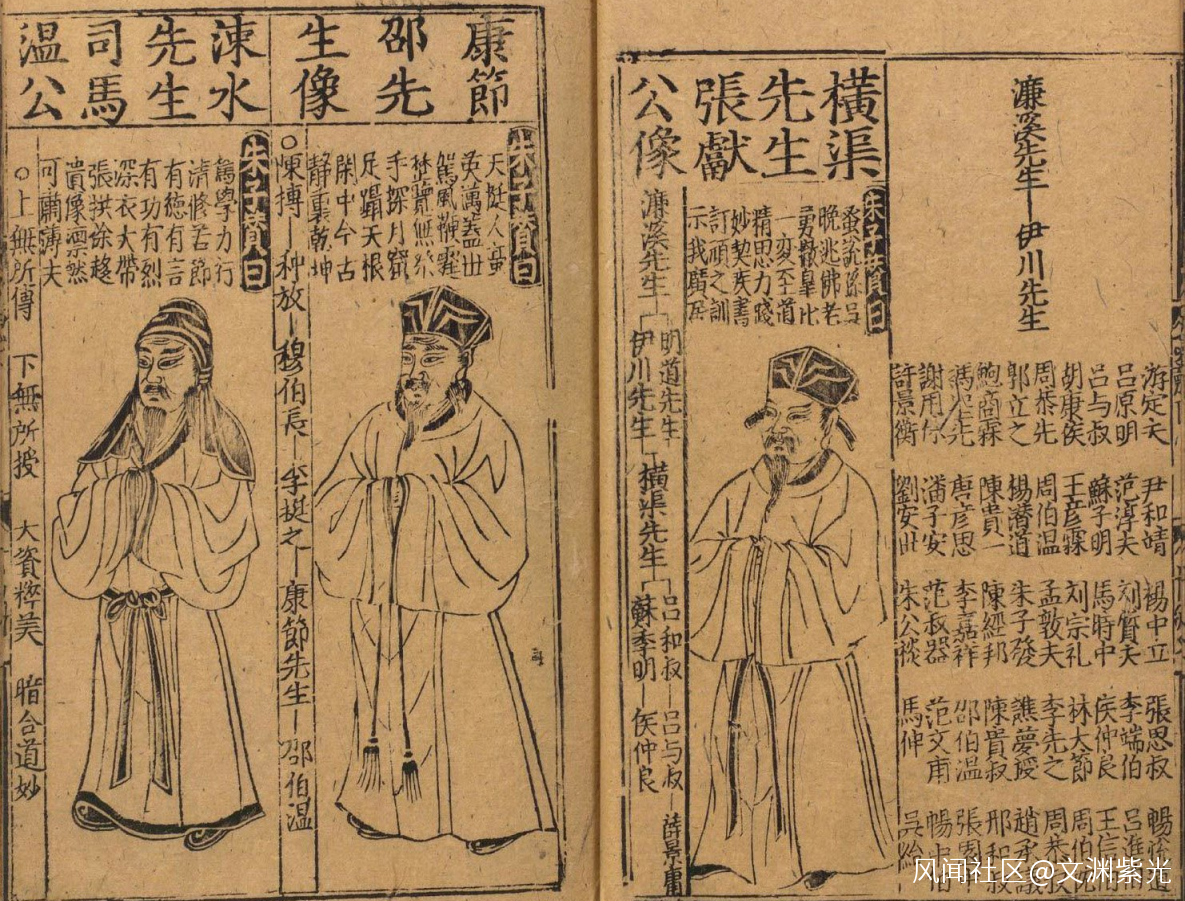 濂溪先生
伊川先生
游定夫 尹和靖 楊中立 張思叔
呂原明 范淳夫 刘質夫 李端伯
呂与叔 蘇子明 馬時中 侯仲良
胡康侯 王彦霖 刘宗礼 林大節
周恭先 周伯温 孟敦夫 李先之
郭立之 楊潜道 朱子發 譙夢授
鮑商霖 陳貴一 陳經邦 陳貴叔
唐彦思 李嘉祥 邵伯温
潘子安 范叔器 范文甫
許景衡 劉安世 朱公掞 馬伸
横渠
先生
張獻
公像
朱子賛曰
蚤說孫吳
晚逃佛老
勇撤臯比
一變至道
精思力踐
妙契疾書
訂頑之訓
示我廣居
濂溪先生
明道先生
伊川先生
横渠先生
呂和叔 呂与叔
蘇季明 侯仲良
康節
邵先
生像
朱子賛曰
天挺人豪
英邁盖世
駕風鞭霆
歷覽無際
手探月窟
足躡天根
閑中今古
静裏乾坤
陳摶 种放 穆伯長 李挺之 康節先生 邵伯温
涑水
先生
司馬
温公
朱子賛曰
篤學力行
清修苦節
有德有言
有功有烈
深衣大帶
張拱徐趍
遺像凛然
可肅薄夫
上無所傳 下無所授 大資粹美 暗合道妙
风闻社区@文渊紫光